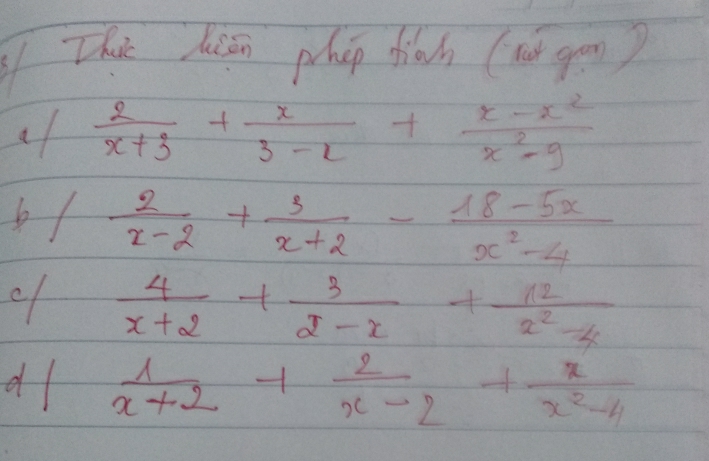 3/ Thực hiện phép tính (rút gọn)
a/ 2/(x+3) + x/(3-x) + (x-x²)/(x²-9)
b/ 2/(x-2) + 3/(x+2) - (18-5x)/(x²-4)
c/ 4/(x+2) + 3/(2-x) + 12/(x²-4)
d/ 1/(x+2) + 2/(x-2) + x/(x²-4)